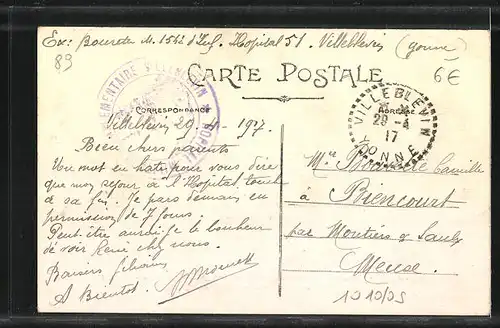 Ex: Bourete M. 154e d'Inf. Hopital 51. Villeblevin (Yonne)
89
6€
CARTE POSTALE
CORRESPONDANCE
ADRESSE
VILLEBLEVIN
29-4
17
YONNE
Villeblevin 29-4-1917.
Bien chers parents
Un mot en hate pour vous dire
que mon séjour à l'Hopital touche
a sa fin. Je pars demain en
permission de 7 jours.
Peut-être aurai-je le bonheur
de voir René chez nous.
Baisers
A Bientot.
Camille
à
Biencourt
par Montiers s/ Saulx
Meuse.